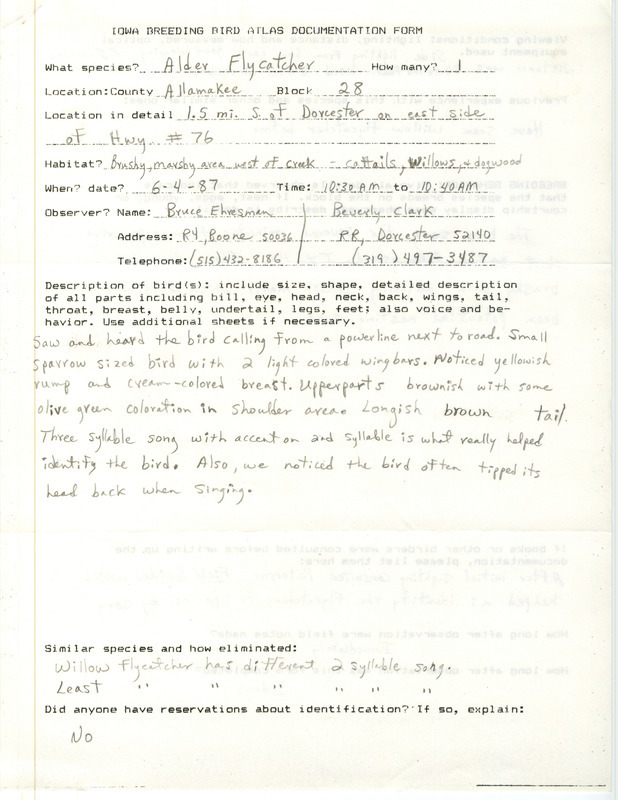 IOWA BREEDING BIRD ATLAS DOCUMENTATION FORM
What species? Alder Flycatcher How many? 1
Location:County Allamakee Block 28
Location in detail 1.5 mi. S. of Dorcester on east side
of Hwy # 76
Habitat? Brushy, marshy area west of creek - cattails, willows, & dogwood
When? date? 6-4-87 Time: 10:30 AM to 10:40 AM
Observer? Name: Bruce Ehresman / Beverly Clark
Address: R4, Boone 50036 RR, Dorcester 52140
Telephone: (515) 432-8186 (319) 497-3487
Description of bird(s): include size, shape, detailed description
of all parts including bill, eye, head, neck, back, wings, tail,
throat, breast, belly, undertail, legs, feet; also voice and be-
havior. Use additional sheets if necessary.
Saw and heard the bird calling from a powerline next to road. Small
sparrow sized bird with 2 light colored wingbars. Noticed yellowish
rump and cream-colored breast. Upperparts brownish with some
olive green coloration in shoulder area. Longish brown tail.
Three syllable song with accent on 2nd syllable is what really helped
identify the bird. Also, we noticed the bird often tipped its
head back when singing.
Similar species and how eliminated:
Willow Flycatcher has different 2 syllable song.
Least " " " " " "
Did anyone have reservations about identification? If so, explain:
No